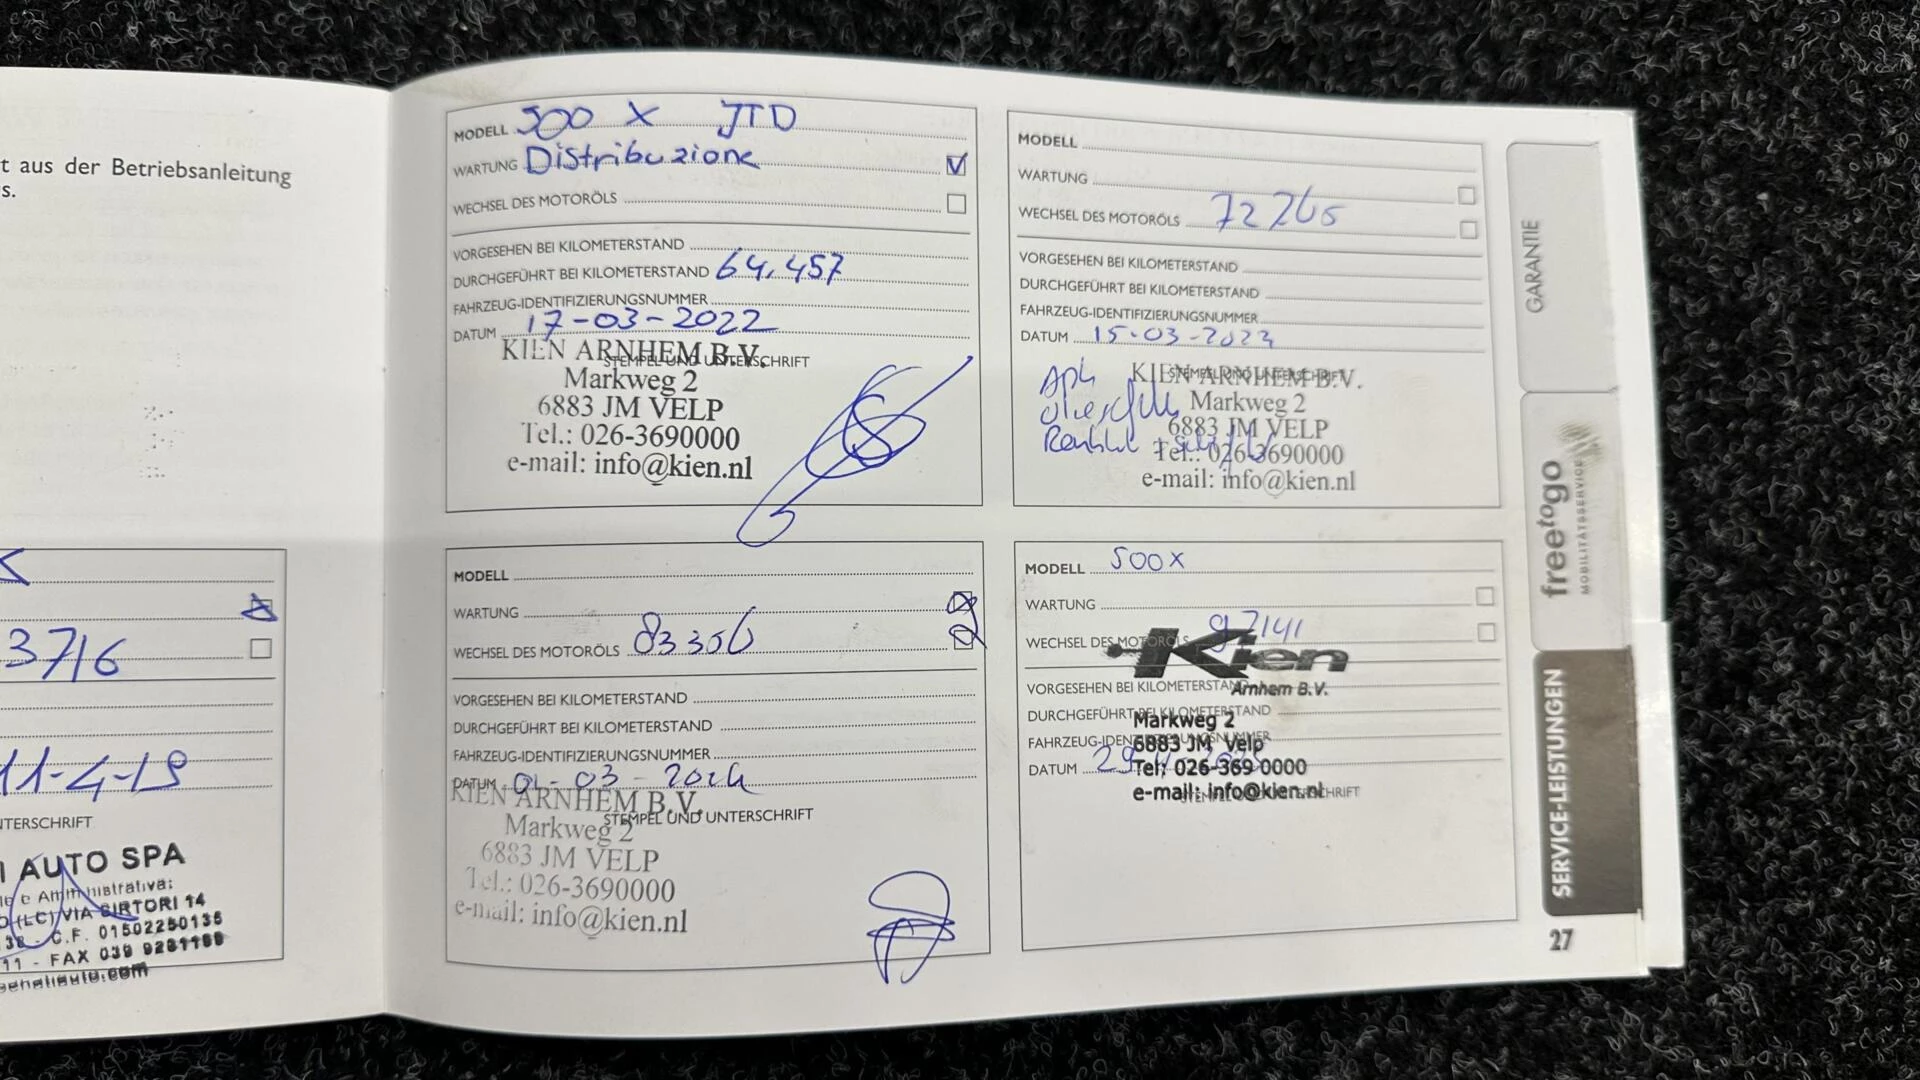 t aus der Betriebsanleitung
s.
3716
11-4-19
NTERSCHRIFT
I AUTO SPA
VIA SIRTORI 14
C.F. 01502250135
11 - FAX 039 9281188
MODELL 500 X JTD
WARTUNG Distribuzione
WECHSEL DES MOTORÖLS
VORGESEHEN BEI KILOMETERSTAND
DURCHGEFÜHRT BEI KILOMETERSTAND 64.457
FAHRZEUG-IDENTIFIZIERUNGSNUMMER
DATUM 17-03-2022
STEMPEL UND UNTERSCHRIFT
KIEN ARNHEM B.V.
Markweg 2
6883 JM VELP
Tel.: 026-3690000
e-mail: info@kien.nl
MODELL
WARTUNG
WECHSEL DES MOTORÖLS 72265
VORGESEHEN BEI KILOMETERSTAND
DURCHGEFÜHRT BEI KILOMETERSTAND
FAHRZEUG-IDENTIFIZIERUNGSNUMMER
DATUM 15-03-2023
STEMPEL UND UNTERSCHRIFT
KIEN ARNHEM B.V.
Markweg 2
6883 JM VELP
Tel.: 026-3690000
e-mail: info@kien.nl
MODELL
WARTUNG
WECHSEL DES MOTORÖLS 83306
VORGESEHEN BEI KILOMETERSTAND
DURCHGEFÜHRT BEI KILOMETERSTAND
FAHRZEUG-IDENTIFIZIERUNGSNUMMER
DATUM 01-03-2024
STEMPEL UND UNTERSCHRIFT
KIEN ARNHEM B.V.
Markweg 2
6883 JM VELP
Tel.: 026-3690000
e-mail: info@kien.nl
MODELL 500X
WARTUNG
WECHSEL DES MOTORÖLS 97141
VORGESEHEN BEI KILOMETERSTAND
DURCHGEFÜHRT BEI KILOMETERSTAND
FAHRZEUG-IDENTIFIZIERUNGSNUMMER
DATUM
STEMPEL UND UNTERSCHRIFT
Kien
Arnhem B.V.
Markweg 2
6883 JM Velp
Tel: 026-369 0000
e-mail: info@kien.nl
GARANTIE
free to go
MOBILITÄTSSERVICE
SERVICE-LEISTUNGEN
27